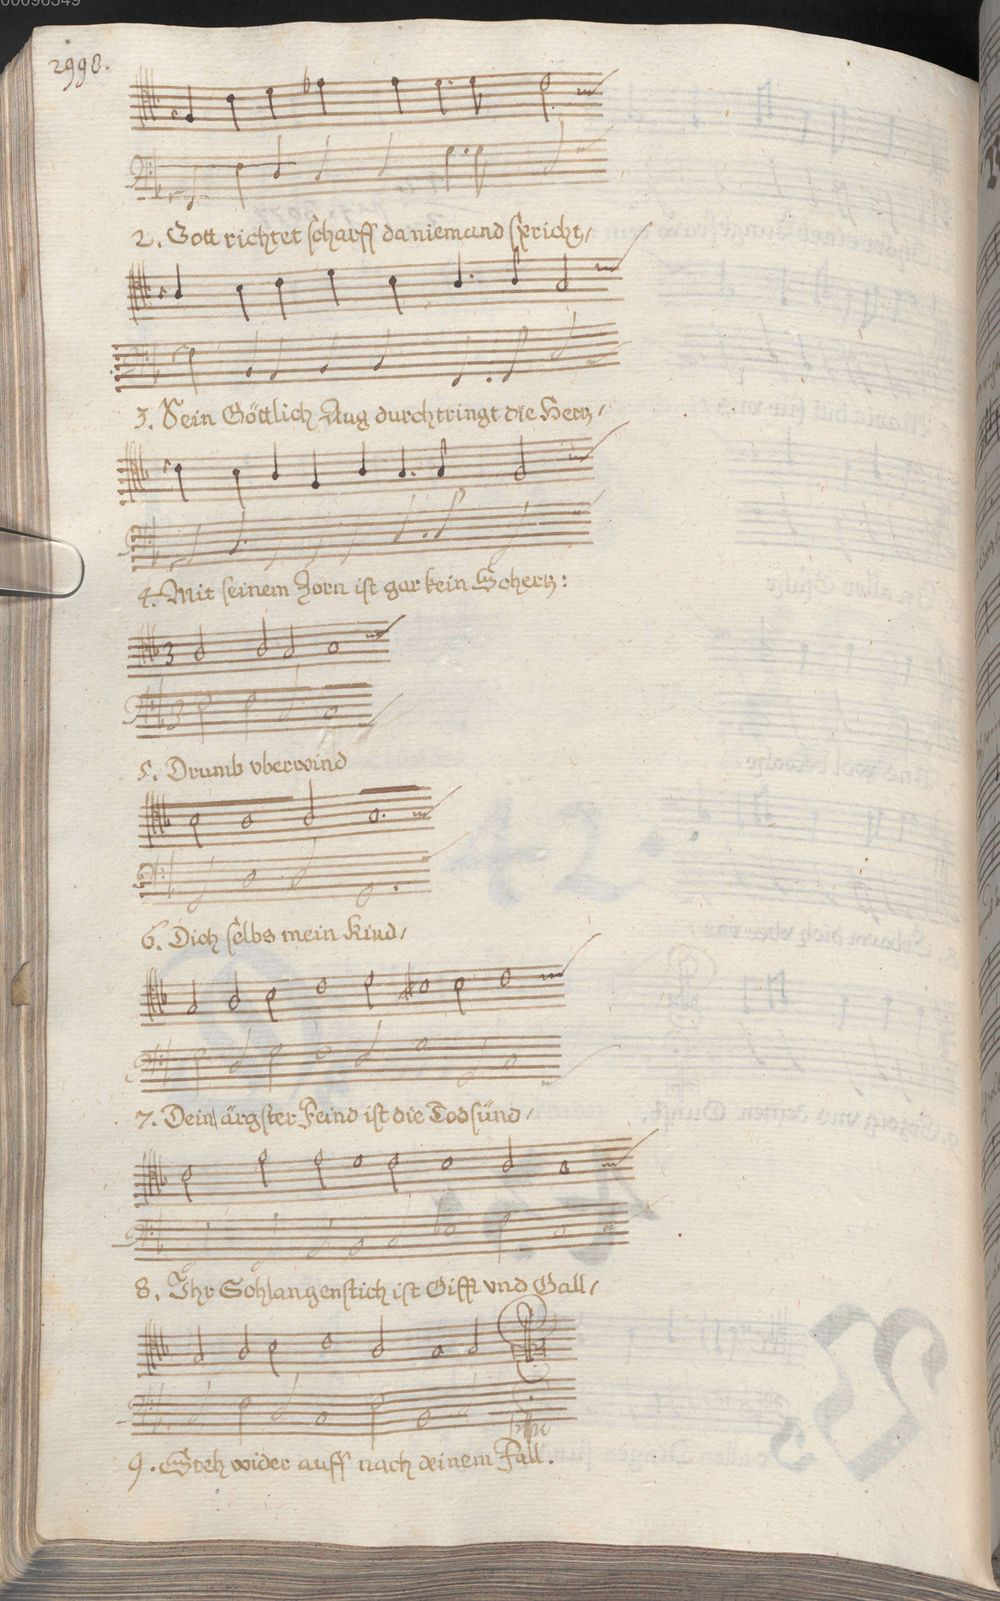 00096349
2998.
2. Gott richtet scharff da niemand spricht/
3. Sein Göttlich Aug durchtringt die Hertz/
4. Mit seinem Zorn ist gar kein Schertz:
3
5. Drumb vberwind
6. Dich selbs mein Kind/
7. Dein ärgster Feind ist die Todsünd/
8. Ihr Schlangenstich ist Gifft vnd Gall/
9. Steh wider auff nach deinem Fall.